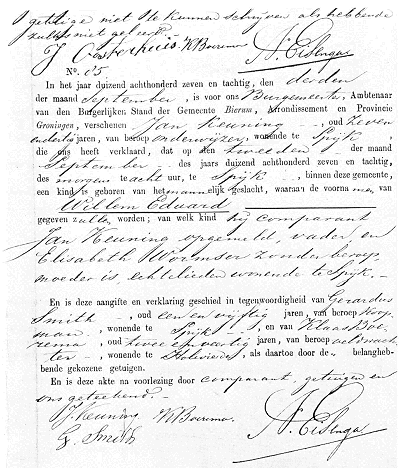 getuige niet te kunnen schrijven als hebbende
zulks niet geleerd.
J. Oosterhuis K Bourema N. Eisenga
No. 85
In het jaar duizend achthonderd zeven en tachtig, den derden
der maand September, is voor ons Burgemeester, Ambtenaar
van den Burgerlijken Stand der Gemeente Bierum, Arrondissement en Provincie
Groningen, verschenen Jan Keuning, oud zeven
endertig jaren, van beroep onderwijzer, wonende te Spijk,
die ons heeft verklaard, dat op den tweeden der maand
September des jaars duizend achthonderd zeven en tachtig,
des morgens te acht uur, te Spijk, binnen deze gemeente,
een kind is geboren van het mannelijk geslacht, waaraan de voornamen van
Willem Eduard
gegeven zullen worden; van welk kind hij comparant
Jan Keuning opgemeld, vader, en
Elisabeth Wormser zonder beroep
moeder is, echtelieden wonende te Spijk.
En is deze aangifte en verklaring geschied in tegenwoordigheid van Gerardus
Smith, oud een en vijftig jaren, van beroep koop
man, wonende te Spijk, en van Klaas Boe
rema, oud twee en veertig jaren, van beroep veldwach
ter, wonende te Holwierde, als daartoe door de belangheb-
bende gekozene getuigen.
En is deze akte na voorlezing door comparant, getuigen en
ons geteekend.
J. Keuning K Bourema N. Eisenga
G. Smith